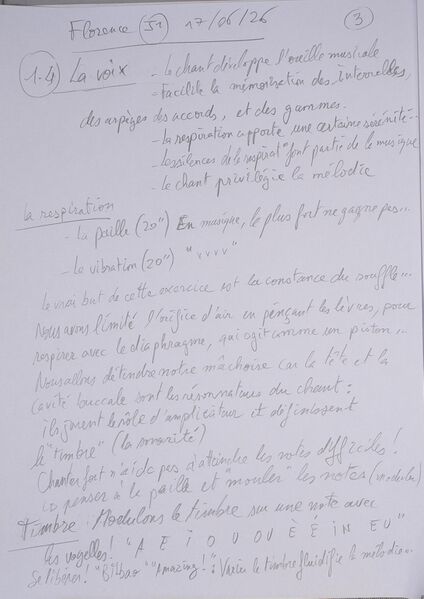 Florence (S1) 17/06/26 (3)
(1-4) La voix - le chant développe l'oreille musicale
- Facilite la mémorisation des intervalles,
des arpèges des accords, et des gammes.
- La respiration apporte une certaine sérénité..
- les silences de la respirat° font partie de la musique
- le chant privilégie la mélodie
la respiration
- La paille (20") En musique, le plus fort ne gagne pas...
- La vibration (20") "vvvv"
Le vrai but de cette exercice est la constance du souffle...
Nous avons limité l'orifice d'air en pinçant les lèvres, pour
respirer avec le diaphragme, qui agit comme un piston...
Nous allons détendre notre mâchoire car la tête et la
cavité buccale sont les résonnateurs du chant :
ils jouent le rôle d'amplicateur et définissent
le "timbre" (la sonorité)
Chanter fort n'aide pas à atteindre les notes difficiles !
penser à la paille et "mouler" les notes (moduler)
Timbre : Modulons le timbre sur une note avec
les voyelles ! "A E I O U OU È É IN EU"
Se libérer ! "Bilbao" "Amazing !" : Varier le timbre fluidifie la mélodie...